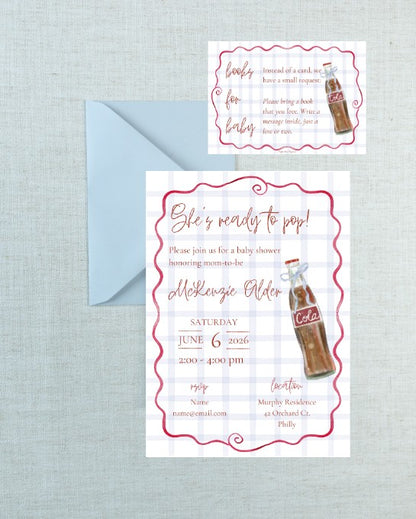 books
for
baby
Instead of a card, we
have a small request.
Please bring a book
that you love. Write a
message inside, just a
line or two.
Cola
She's ready to pop!
Please join us for a baby shower
honoring mom-to-be
McKenzie Alder
SATURDAY
JUNE 6 2026
2:00 - 4:00 pm
Cola
rsvp
Name
name@email.com
location
Murphy Residence
42 Orchard Ct.
Philly